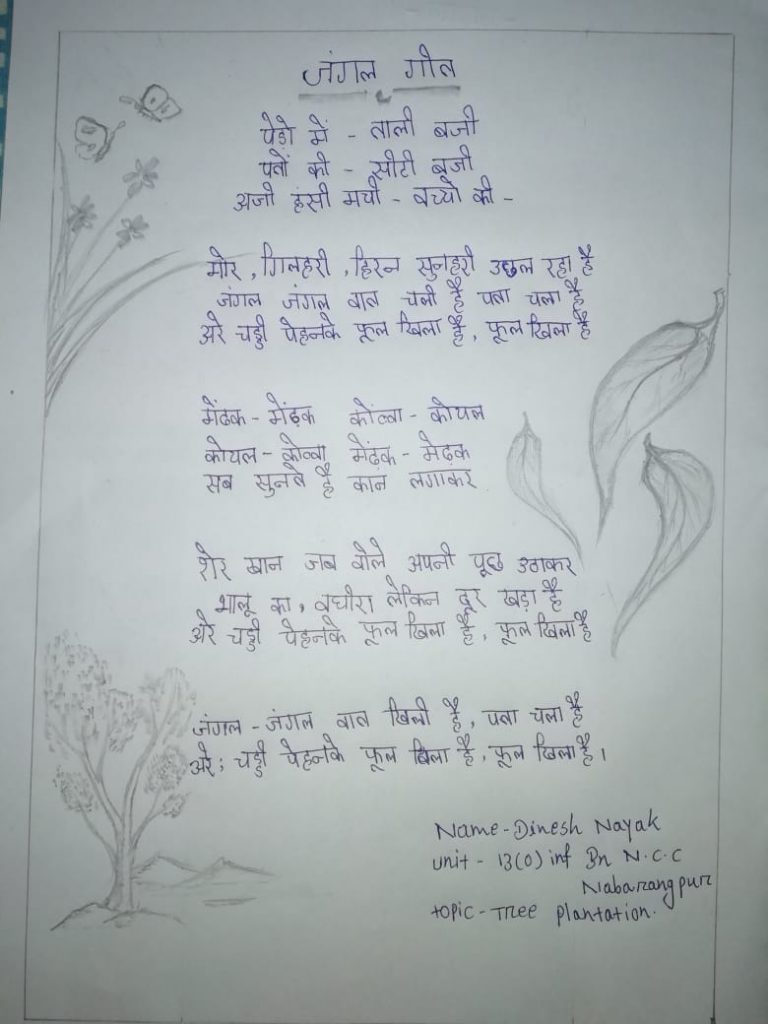 जंगल गीत
पेड़ो में - ताली बजी
पतों की - सीटी बजी
अजी हंसी मची - बच्चो की -
मोर , गिलहरी , हिरन सुनहरी उछल रहा है
जंगल जंगल बात चली है पता चला है
अरे चड्डी पेहनके फूल खिला है , फूल खिला है
मेंढक - मेंढ़क कोव्वा - कोयल
कोयल - कोव्वा मेंढ़क - मेढ़क
सब सुनते है कान लगाकर
शेर खान जब बोले अपनी पूछ उठाकर
भालू का , बघीरा लेकिन दूर खड़ा है
अरे चड्डी पेहनके फूल खिला है , फूल खिला है
जंगल - जंगल बात खिली है , पता चला है
अरे ; चड्डी पेहनके फूल खिला है , फूल खिला है ।
Name - Dinesh Nayak
unit - 13(O) inf Bn N.C.C
Nabarangpur
topic - Tree plantation.